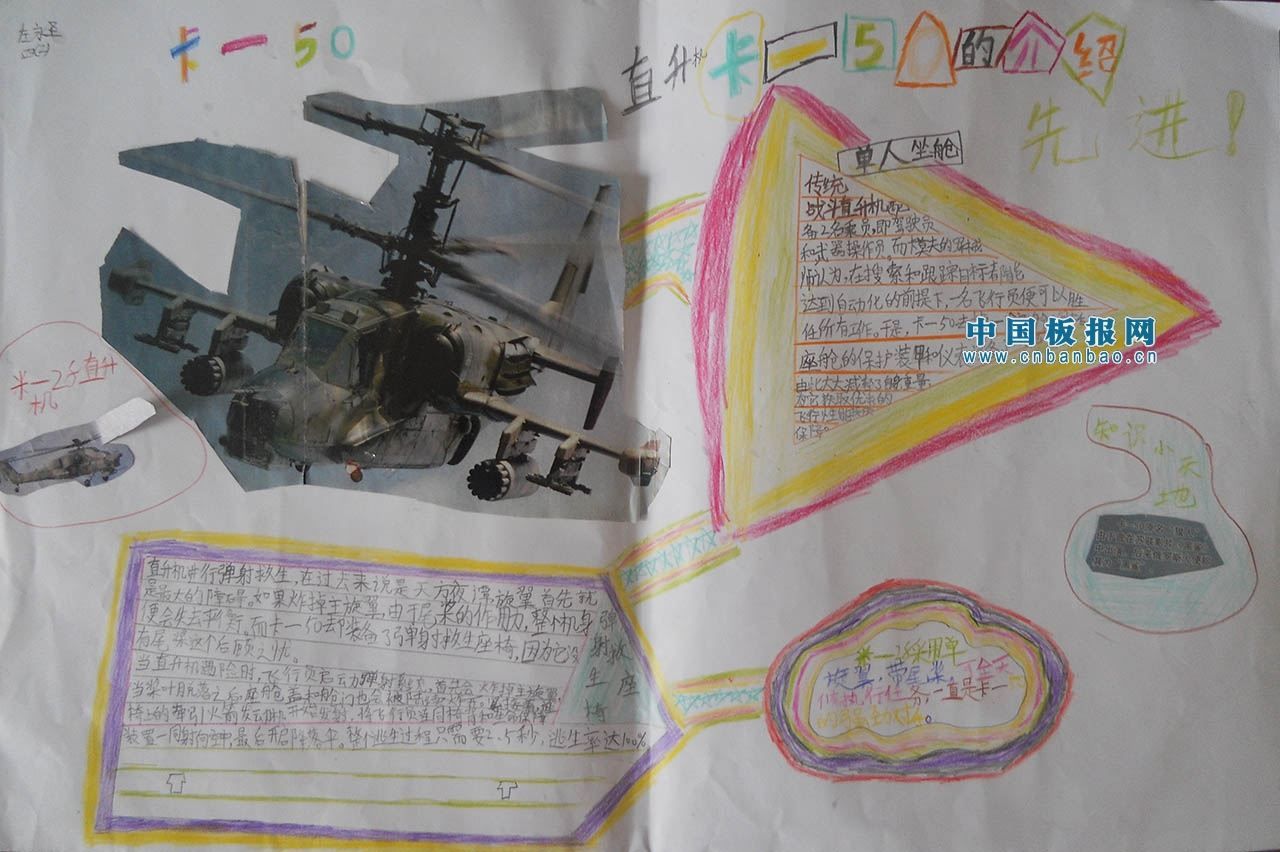 卡一50
直升机卡一50的介绍
先进!
单人坐舱
传统
战斗直升机配
备2名乘员,即驾驶员
和武器操作员.而卡莫夫的
师认为,在搜索和跟踪目标者
达到自动化的前提下,一名飞行员便可以胜
任所有工作。于是,卡一50
座舱的保护装甲和仪
由此大大减轻了
飞行性能
保障。
中国板报网
www.cnbanbao.cn
米一28直升
机
知识
小天
地
直升机进行弹射救生,在过去来说是天方夜谭。旋翼首先就
是最大的障碍。如果炸掉主旋翼,由于尾桨的作用,整个机身
便会失去平衡。而卡一50却装备了弹射救生座椅,因为它没
有尾桨这个后顾之忧。
当直升机遇险时,飞行员启动弹射程序,首先会炸掉主旋翼,
当桨叶脱落之后,座舱盖和舱门也会被
椅上的牵引火箭发动机开始
装置一同射向空中,最后开启降落伞。整个逃生过程只需要2.5秒,逃生率达100%
弹射救生座椅
米一28采用单
旋翼,带尾桨,可全天
候执行任务,一直是卡一
的强劲对手。